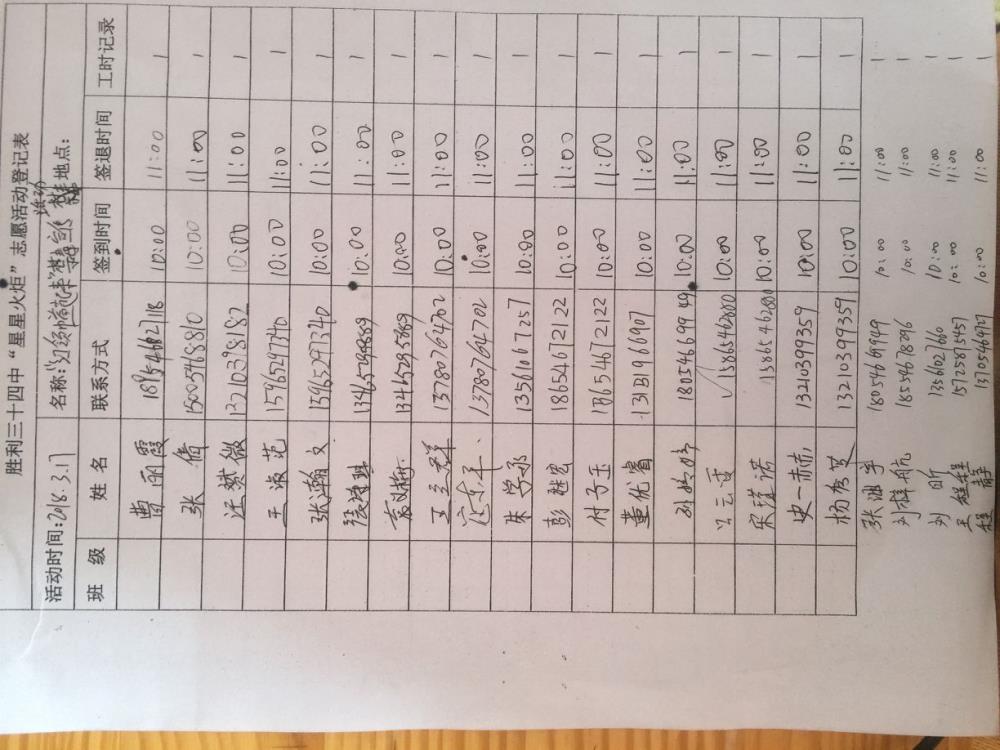 胜利三十四中“星星火炬”志愿活动登记表
活动时间:2018.3.17 名称: 活动 地点:
班 级 姓 名 联系方式 签到时间 签退时间 工时记录
曹丽霞 18954682118 10:00 11:00 1
张倩 15005468810 10:00 11:00 1
汪赞微 13210398182 10:00 11:00 1
王淑范 15965297340 10:00 11:00 1
张瀚文 15965297340 10:00 11:00 1
10:00 11:00 1
10:00 11:00 1
王立群 13780764702 10:00 11:00 1
13780764702 10:00 11:00 1
朱学承 13561067257 10:00 11:00 1
彭继宏 18654672122 10:00 11:00 1
付子玉 18654672122 10:00 11:00 1
董优睿 10:00 11:00 1
孙婷婷 18054669949 10:00 11:00 1
云雯 15865462880 10:00 11:00 1
宋莲诺 15865462880 10:00 11:00 1
史一赫 13210399359 10:00 11:00 1
杨秀芝 13210399359 10:00 11:00 1
张迦宇 18054669949 10:00 11:00 1
刘梓航 18554678096 10:00 11:00 1
刘昕 13561021660 10:00 11:00 1
王程程 15725875457 10:00 11:00 1
程静 13705469767 10:00 11:00 1